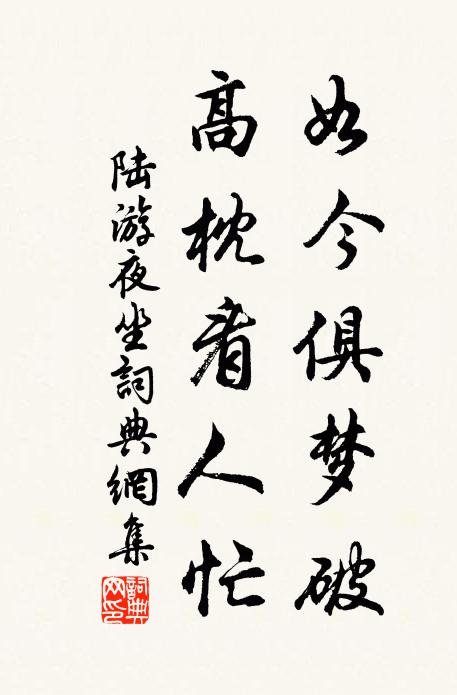 如今俱梦破
高枕看人忙
陆游夜坐詞典網集
詞典网印